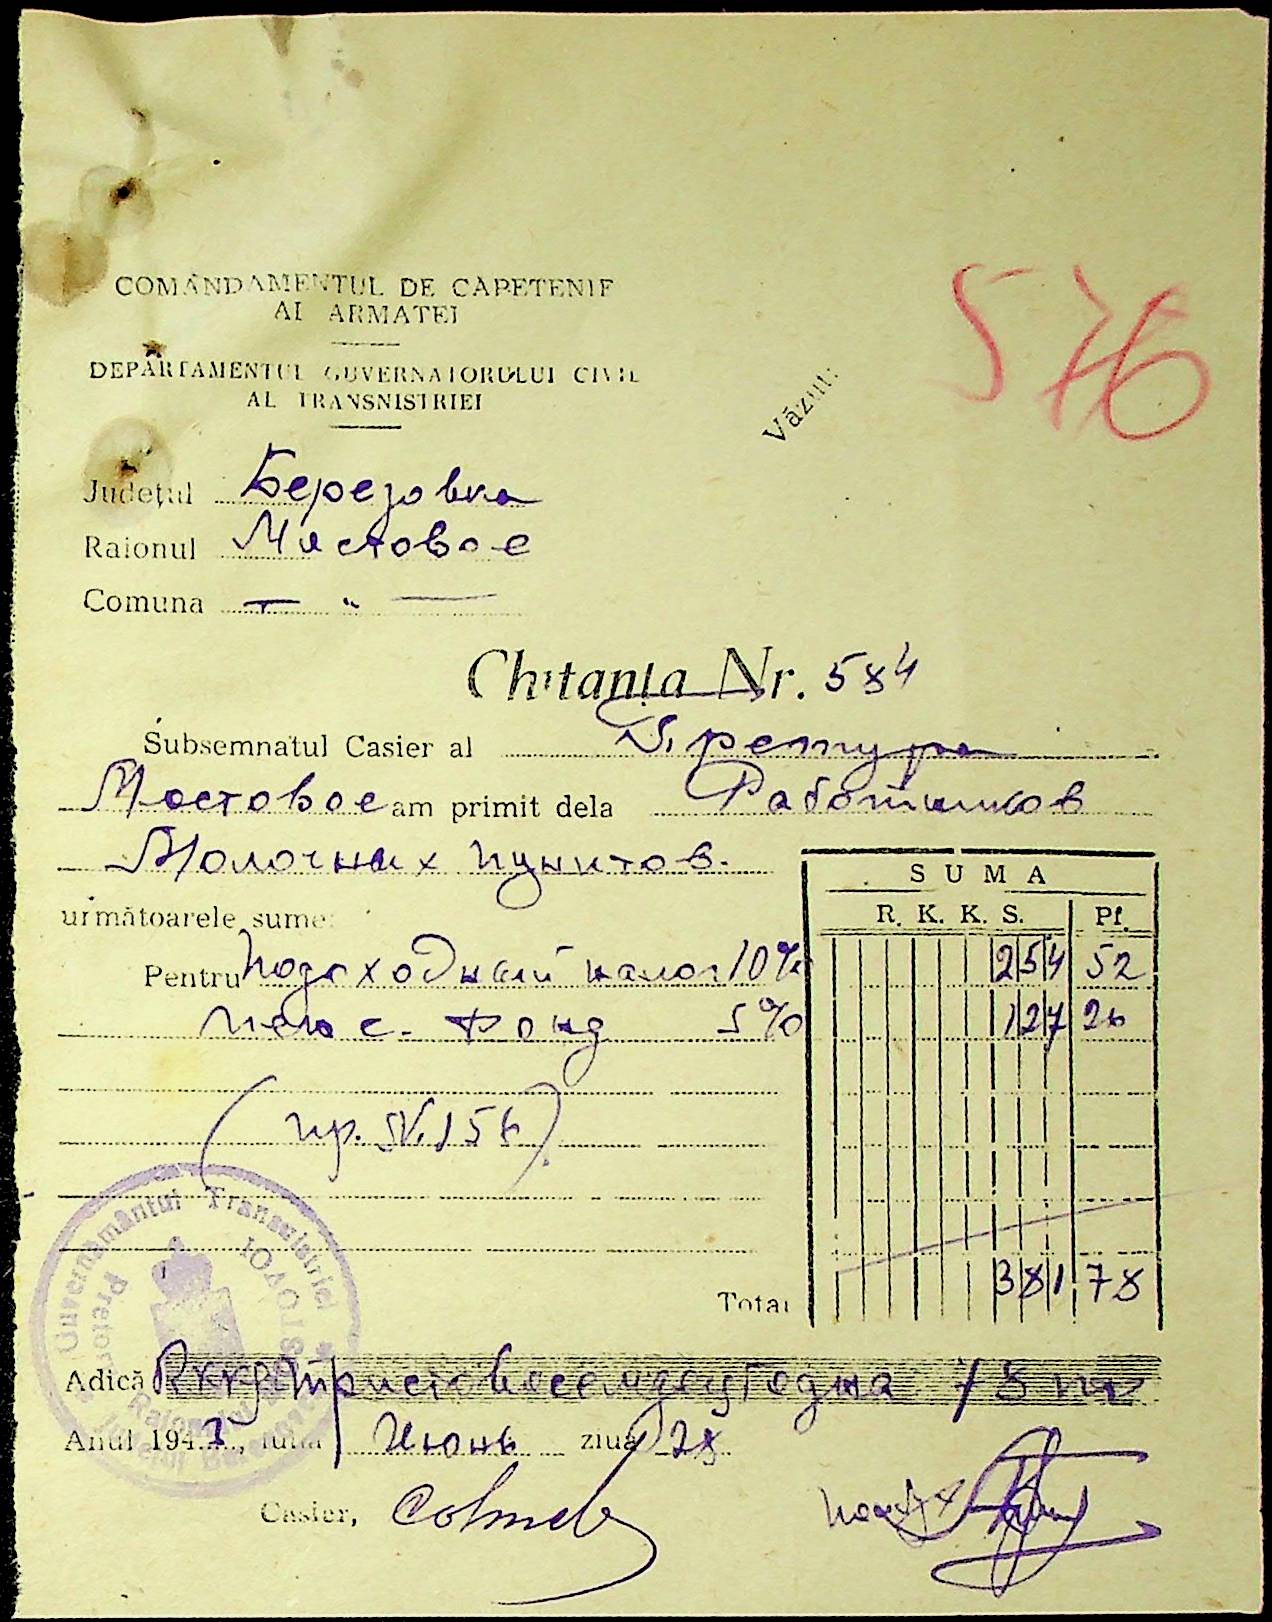 COMANDAMENTUL DE CAPETENIE
AL ARMATEI
DEPARTAMENTUL GUVERNATORULUI CIVIL
AL TRANSNISTRIEI
576
Văzut:
Județul Березовка
Raionul Мястовое
Comuna — „ —
Chitanța Nr. 584
Subsemnatul Casier al Претура
Мостовое am primit dela Работников
Молочных пунктов.
S U M A
următoarele sume:
R. K. K. S. Pf.
Pentru Подоходный налог 10% 254 52
пенс. Фонд 5% 127 26
(пр. N. 156)
Total 381 78
Guvernământul Transnistriei
Adică Rккр Триста восемдесят одна 78 пф
Anul 194 luna Июнь ziua 28
Casier,